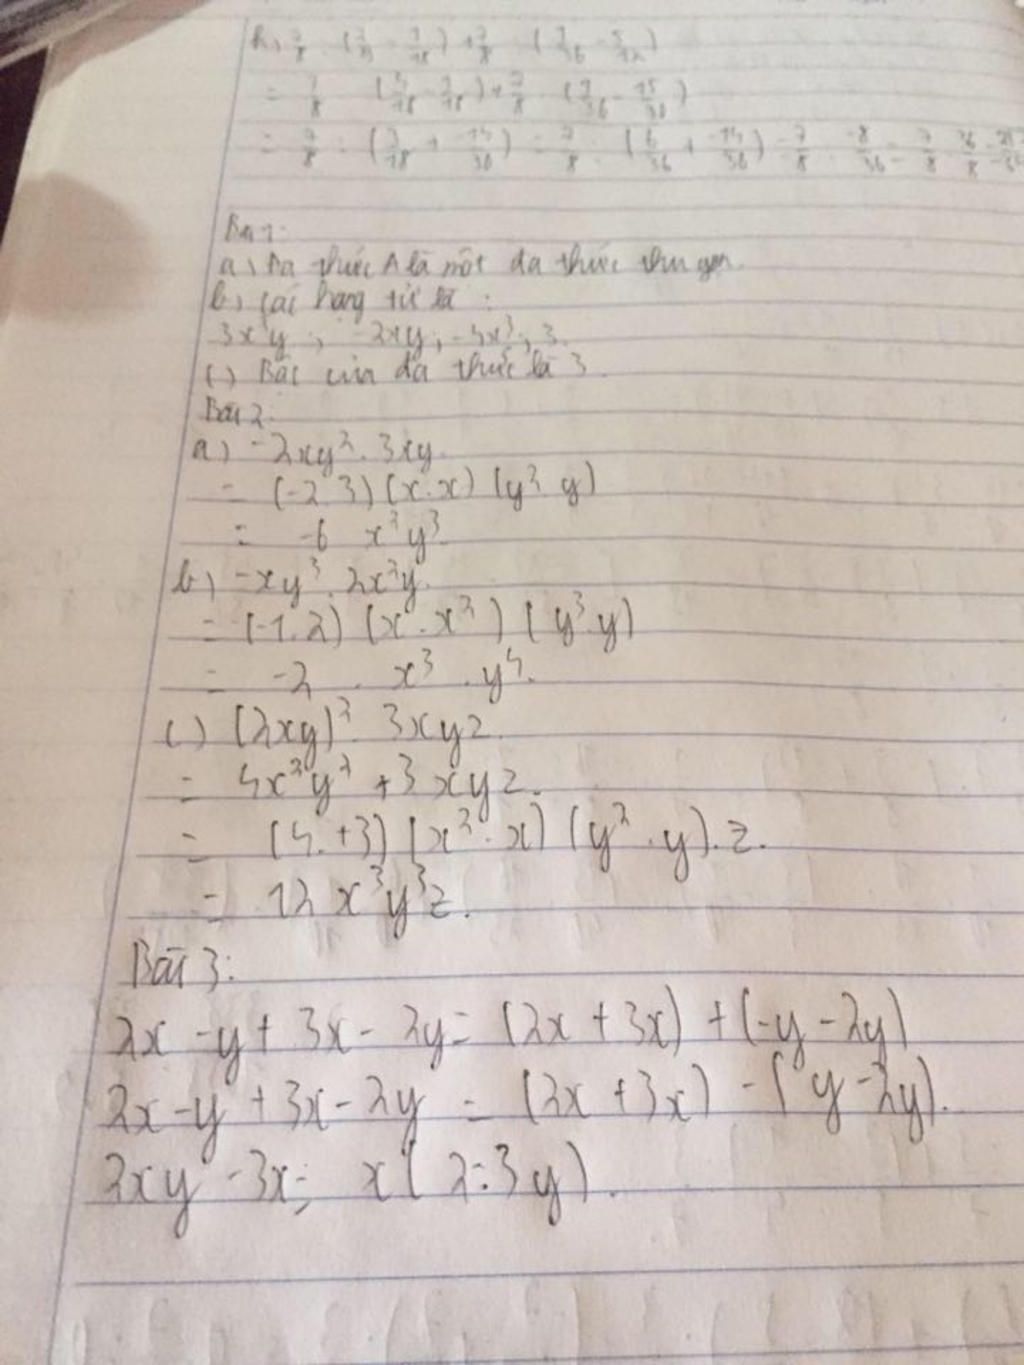 = 7/8 (4/18 - 7/18) + 7/8 (7/36 - 15/36)
Bài 1:
a) Đa thức A là một đa thức thu gọn.
b) Các hạng tử là :
3x²y ; -2xy ; -4x³ ; 3.
c) Bậc của đa thức là 3.
Bài 2:
a) -2xy². 3xy.
= (-2.3) (x.x) (y². y)
= -6 x²y³.
b) -xy³. 2x²y.
= (-1.2) (x.x²) (y³.y)
= -2 . x³ . y⁴.
c) (2xy)² 3xyz.
= 4x²y² +3xyz.
= (4.+3) (x².x) (y².y).z.
= 12 x³y³z.
Bài 3:
2x -y + 3x - 2y = (2x + 3x) + (-y - 2y)
2x - y + 3x - 2y = (2x + 3x) - ( y - 2y).
2xy - 3x = x( 2-3y).